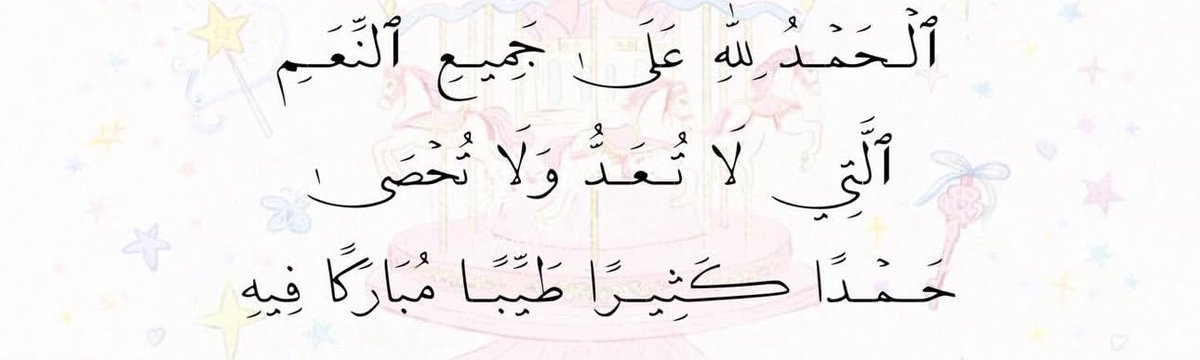 ٱلْحَمْدُ لِلّٰهِ عَلَىٰ جَمِيعِ ٱلنِّعَمِ
ٱلَّتِي لَا تُعَدُّ وَلَا تُحْصَىٰ
حَمْدًا كَثِيرًا طَيِّبًا مُبَارَكًا فِيهِ